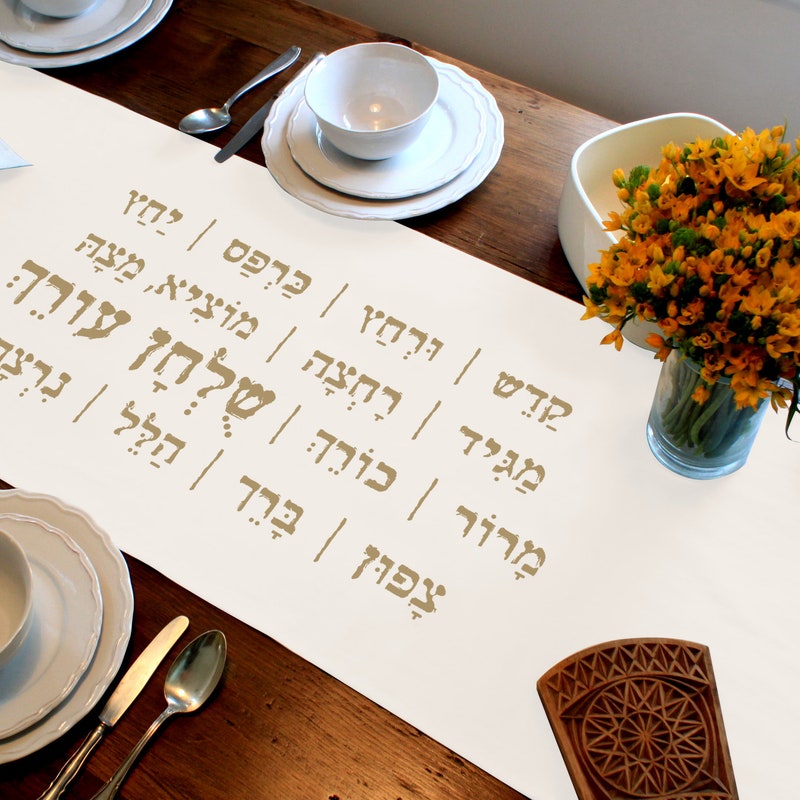 קַדֵּשׁ | וּרְחַץ | כַּרְפַּס | יַחַץ
מַגִּיד | רָחְצָה | מוֹצִיא, מַצָּה
מָרוֹר | כּוֹרֵךְ | שֻׁלְחָן עוֹרֵךְ
צָפוּן | בָּרֵךְ | הַלֵּל | נִרְצָה